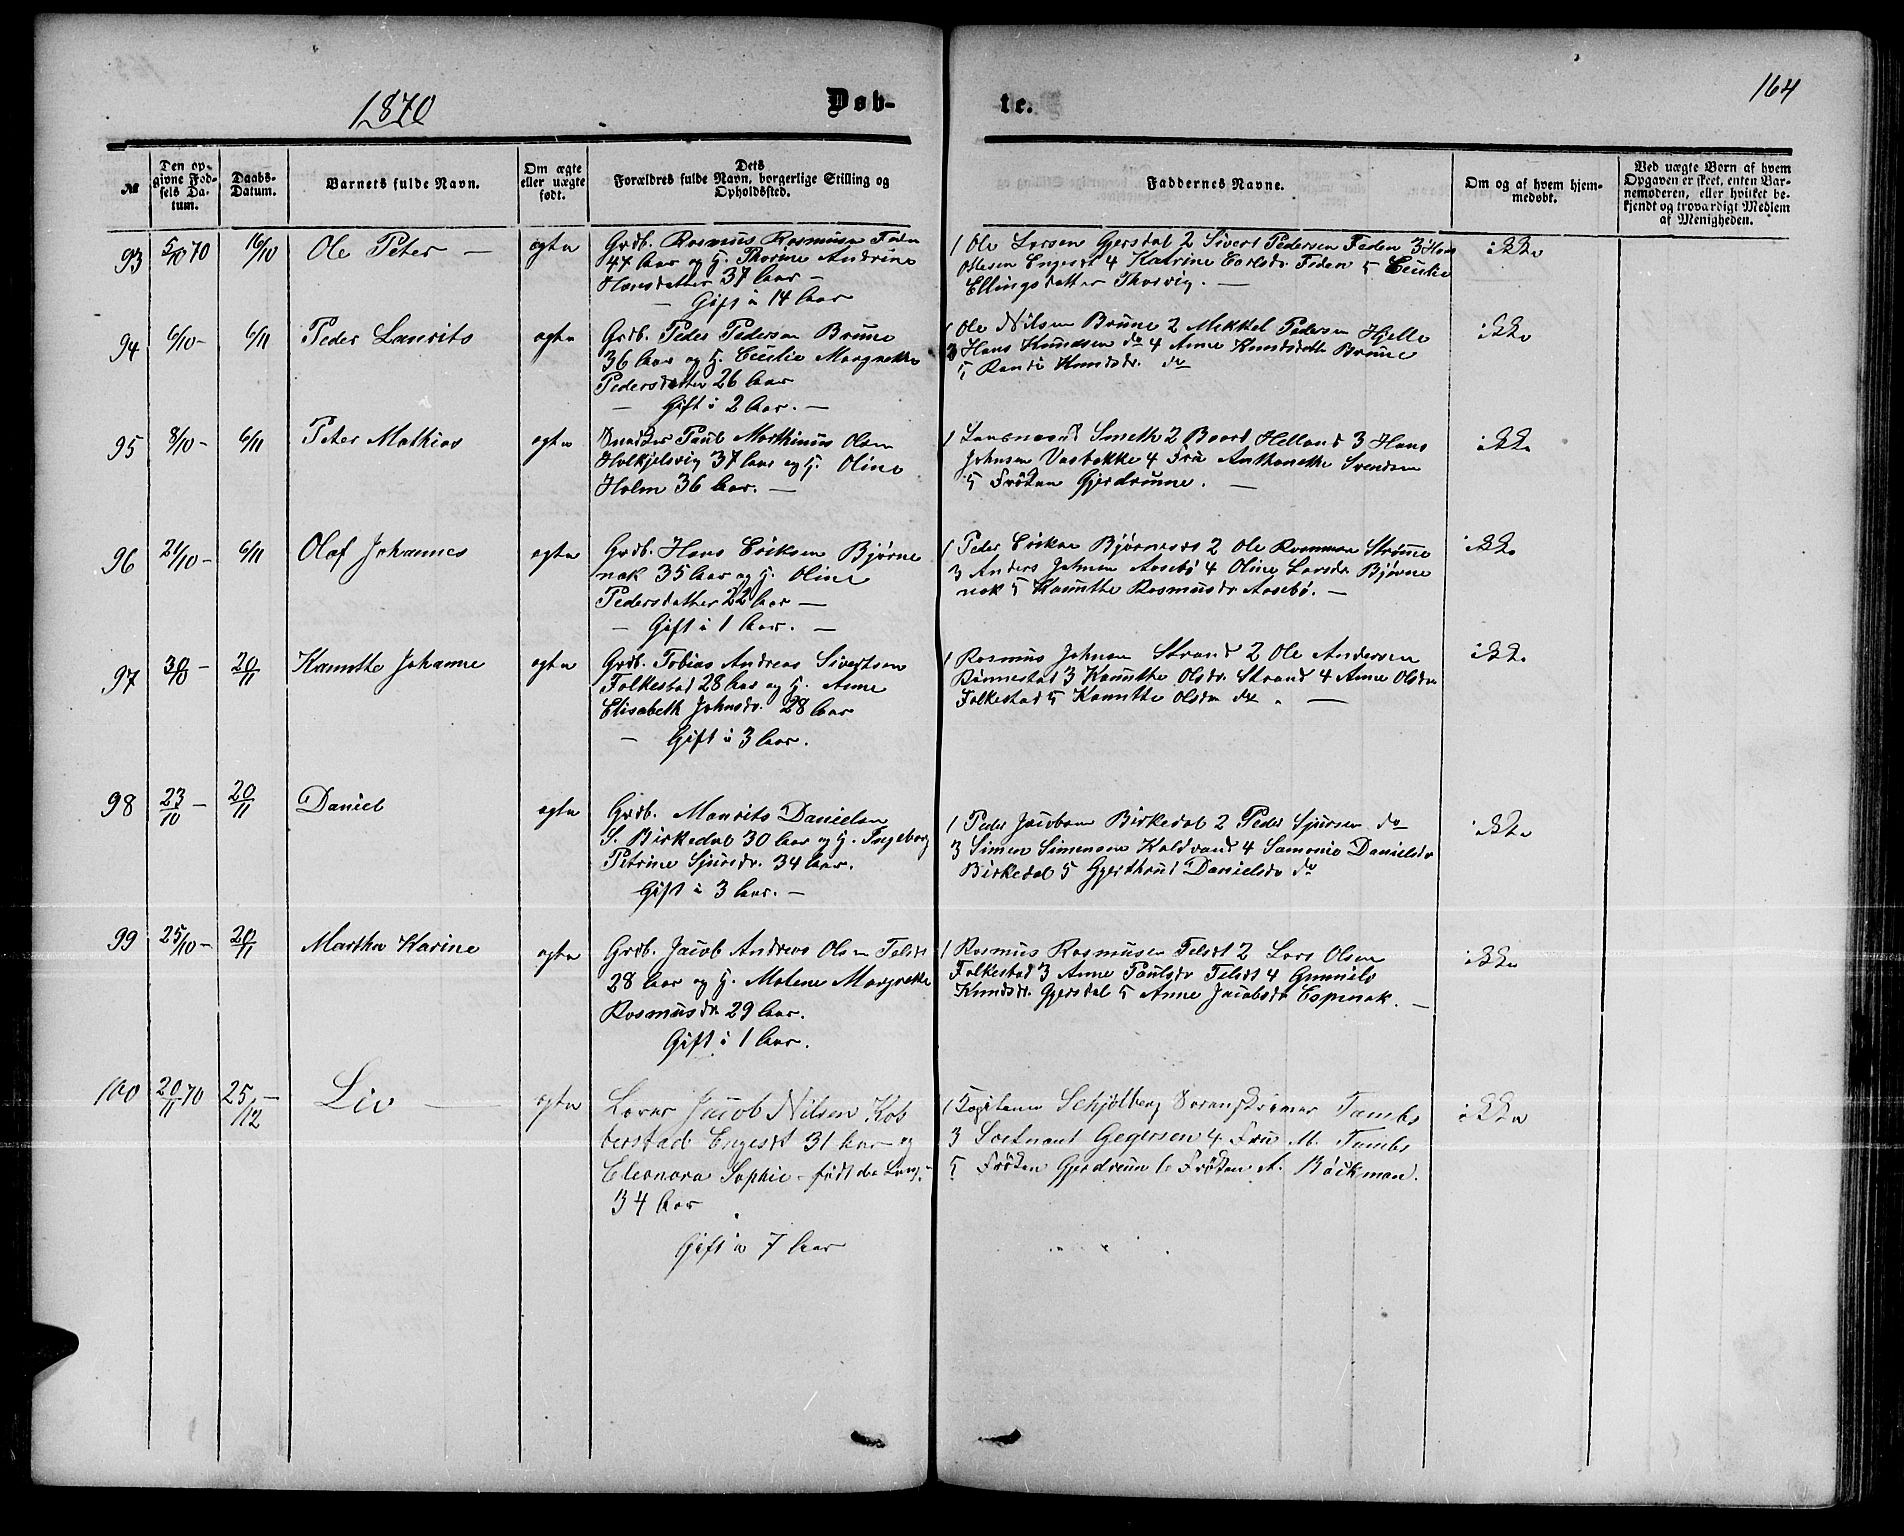 164
1870
Døb- te.
№
Den opgivne Fødsels Datum.
Daabs-Datum.
Barnets fulde Navn.
Om ægte eller uægte født.
Dets Forældres fulde Navn, borgerlige Stilling og Opholdssted.
Faddernes Navne.
Om og af hvem hjemmedøbt.
Ved uægte Børn af hvem Opgaven er skeet, enten Barnemoderen, eller hvilket bekjendt og troværdigt Medlem af Menigheden.
93 5/10 70 16/10 Ole Peter — ægte
Grdb. Rasmus Rasmusen
47 Aar og H. Thorine Andrine
Hansdatter 37 Aar —
— Gift i 14 Aar
1 Ole Larsen Gjersdal 2 Sivert Pedersen Feden 3 Hans
Olesen Engeset 4 Katrine Carlsdr. Feden 5 Cecilie
Ellingsdatter Thorvig. —
ikke
94 6/10 - 6/11 Peder Laurits ægte
Grdb. Peder Pedersen Brune
36 Aar og H. Cecilie Margrethe
Pedersdatter 26 Aar
— Gift i 2 Aar. —
1 Ole Nilsen Brune 2 Mikkel Pedersen Hjelle
3 Hans Knudsen do 4 Anne Knudsdatter Brune
5 Randi Knudsdr. do
ikke
95 8/10 - 6/11 Peter Mathias ægte
Paul Marthinus Olsen
Holkjelsvig 37 Aar og H. Oline
Holm 36 Aar. —
1 Smeth 2 Baard Helland 3 Hans
Johnsen Vasbakke 4 Fru Anthonette Svendsen
5 Frøken Gjerdrum. —
ikke
96 21/10 - 6/11 Olaf Johannes ægte
Grdb. Hans Eriksen Bjørne
nak 35 Aar og H. Oline
Pedersdatter 22 Aar —
— Gift i 1 Aar. —
1 Peder 2 Ole Rasmusen Strømme
3 Anders Johnsen Aasebø 4 Oline Larsdr Bjørne
nak 5 Kanutte Rasmusdr Aasebø. —
ikke
97 30/10 - 20/11 Kanutte Johanne ægte
Grdb. Tobias Andreas Sivertsen
Folkestad 28 Aar og H. Anne
Elisabeth Johnsdr. 28 Aar
— Gift i 3 Aar.
1 Rasmus Johnsen Strand 2 Ole Andersen
Rønnestad 3 Kanutte Olsdr. Strand 4 Anne Olsdr
Folkestad 5 Kanutte Olsdr do. —
ikke
98 23/10 - 20/11 Daniel ægte
Grdb. Maurits Danielsen
S. Birkedal 30 Aar og H. Ingeborg
Petrine Sjursdr. 34 Aar.
Gift i 3 Aar. —
1 Peder Jacobsen Birkedal 2 Peder Sjursen do
3 Simen Simensen Kaldvand 4 Samonie Danielsdr
Birkedal 5 Gjerthrud Danielsdr do
ikke
99 25/10 - 20/11 Martha Karine ægte
Grdb. Jacob Andreas Olsen
28 Aar og H. Malene Margrethe
Rasmusdr 29 Aar.
Gift i 1 Aar.
1 Rasmus Rasmusen 2 Lars Olsen
Folkestad 3 Anne Paulsdr 4 Gunnild
Knudsdr. Gjersdal 5 Anne Jacobsdr Espenak. —
ikke
100 20/11 70 25/12 — Liv — ægte
Jacob Nilsen Kob
berstad Engeset 31 Aar og
Eleonora Sophie - født
34 Aar
Gift i 7 Aar
1 Schjølberg Tambs
3 Gegersen 4 Fru M. Tambs
5 Frøken Gjerdrum 6 Frøken A. Bøckman.
ikke